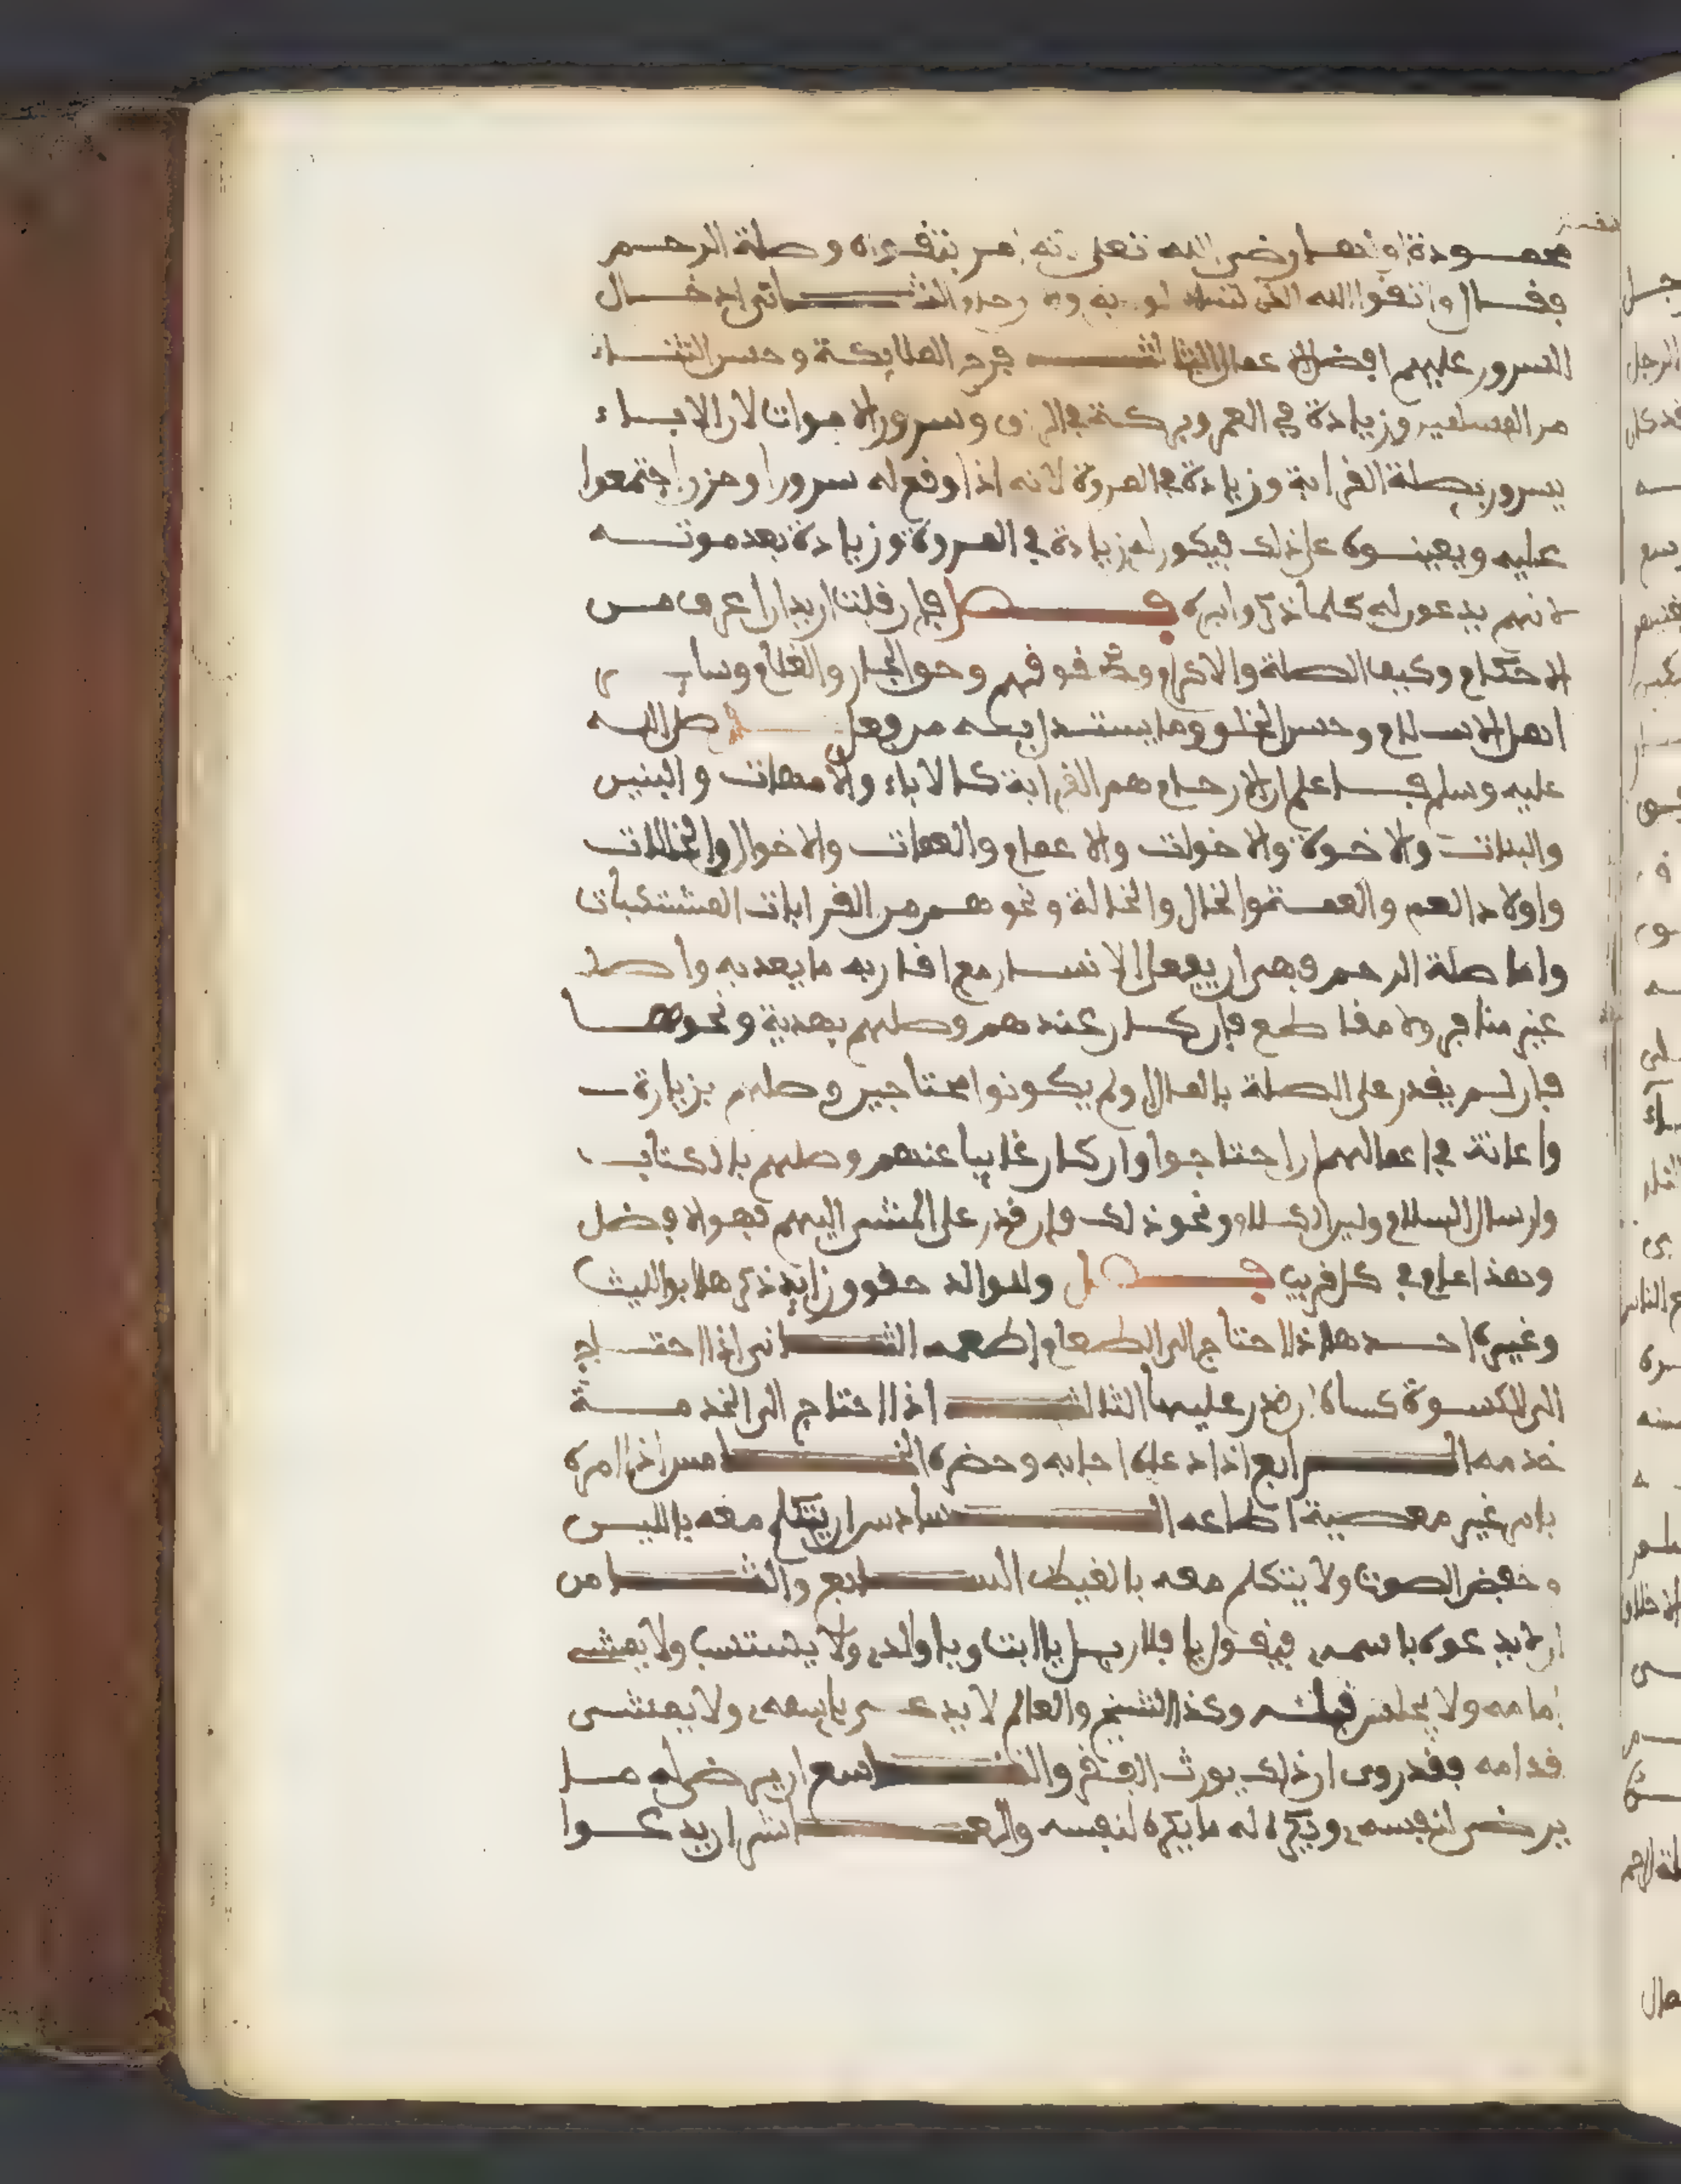 محمودة اولها رضى الله تعلى لانه امر بتقواه وصلة الرحم
فقال واتقوا الله الذى تساءلون به والارحام والثانى ادخال
السرور عليهم افضل الاعمال الثالث فرح الملايكة وحسن الثناء
من المسلمين وزيادة في العمر وبركة في الرزق وسرور الاموات لان الاباء
يسرون بصلة القرابة وزيادة في المروة لانه اذا وقع له سرور او حزن اجتمعوا
عليه ويعينوه على ذلك فيكون له زيادة في المروة وزيادة بعد موته
لانهم يدعون له كلما ذكروا بره فصل فان قلت اريد ان اعرف من
الارحام وكيف الصلة والاكرام وحقوقهم وحق الجار والغلام وساير
اهل الاسلام وحسن الخلق وما يستدل به من فعل صلى الله
عليه وسلم فاعلم ان الارحام هم القرابة كالاباء والامهات والبنين
والبنات والاخوة والاخوات والاعمام والعمات والاخوال والخالات
واولاد العم والعمة والخال والخالة ونحوهم من القرابات المشتبكات
واما صلة الرحم فهى ان يفعل الانسان مع اقاربه ما يعد به واصلا
غير منافر ولا مقاطع فان كان عندهم وصلهم بهدية ونحوها
فان لم يقدر على الصلة بالمال ولم يكونوا محتاجين وصلهم بزيارة
واعانة في اعمالهم ان احتاجوا وان كان غايبا عنهم وصلهم بالكتاب
وارسال السلام ولين الكلام ونحو ذلك فان قدر على المشى اليهم فهو الافضل
وهذا عام في كل قريب فصل وللوالد حقوق زايدة ذكرها ابو الليث
وغيره احدها اذا احتاج الى الطعام اطعمه الثانى اذا احتاج
الى الكسوة كساه ان قدر عليها الثالث اذا احتاج الى الخدمة
خدمه الرابع اذا دعاه اجابه وحضره الخامس اذا امره
بامر غير معصية اطاعه السادس ان يتكلم معه باللين
وخفض الصوت ولا يتكلم معه بالغيظ السابع والثامن
ان لا يدعوه باسمه فيقول يا فلان بل يا ابت ويا والدى ولا يستسب ولا يمشى
امامه ولا يجلس قبله وكذا الشيخ والعالم لا يدعى باسمه ولا يمشى
قدامه فقد روى ان ذلك يورث الفقر والتاسع ان يرضى له ما
يرضى لنفسه ويكره له ما يكره لنفسه والعاشر ان يدعوا